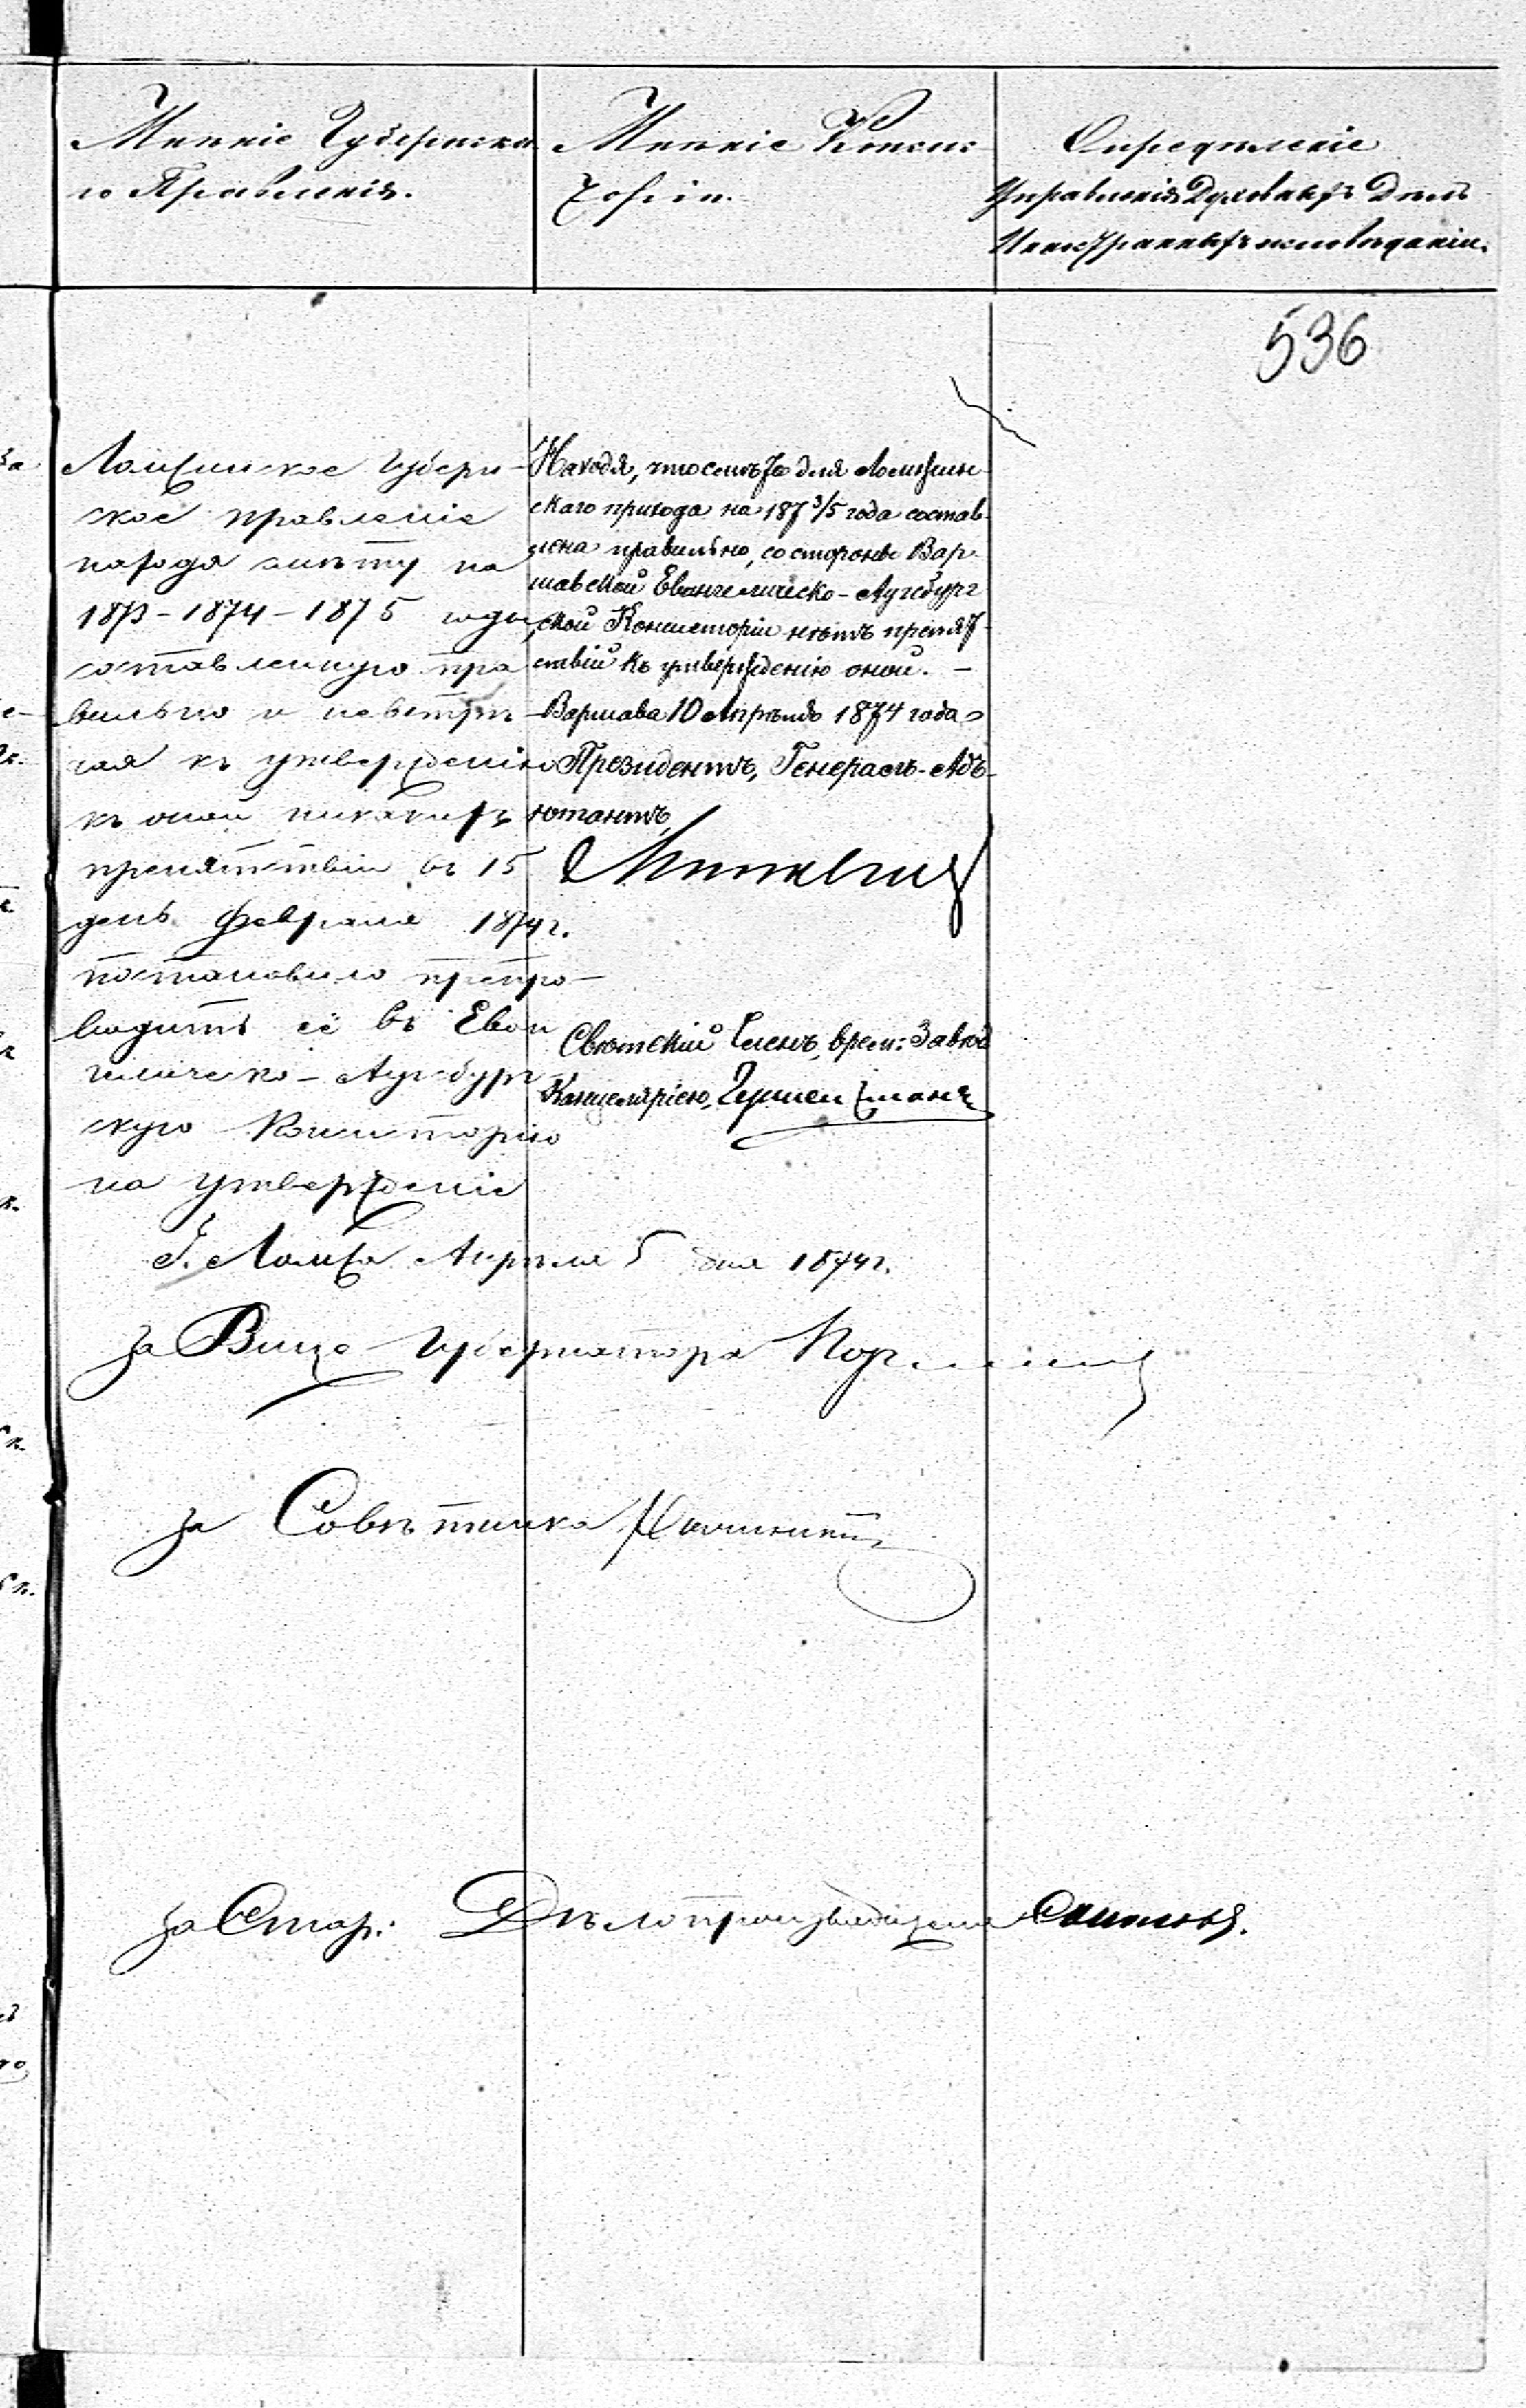 Мнѣніе Губернска
го Правленія.
Мнѣніе Консис
торіи.
Опредѣленіе
Управленія Духовныхъ Дѣлъ
Иностранныхъ исповѣданій.
536
Ломжинское Губерн-
ское правленіе
находя смѣту на
1873-1874-1875 годы,
составленную пра
вильно и невстрѣ-
чая къ утвержденію
къ оной никакихъ
препятствій въ 15
день Февраля 1874 г.
постановило препро-
водить её въ Еван
гелическо-Аугсбург-
скую Консисторію
на утвержденіе
Г. Ломжа Апрѣля 5 дня 1874 г.
За Вице Губернатора
За Совѣтника
За Стар: Дѣлопроизводителя
Находя, что смѣта для Ломжин-
скаго прихода на 187 3/5 года состав-
лена правильно, со стороны Вар-
шавской Евангелическо-Аугсбург
ской Консисторіи нѣтъ препят-
ствій къ утвержденію оной. —
Варшава 10 Апрѣля 1874 года
Президентъ, Генералъ-Адъ-
ютантъ,
Свѣтскій Членъ, врем: Завѣд
Канцеляріею,